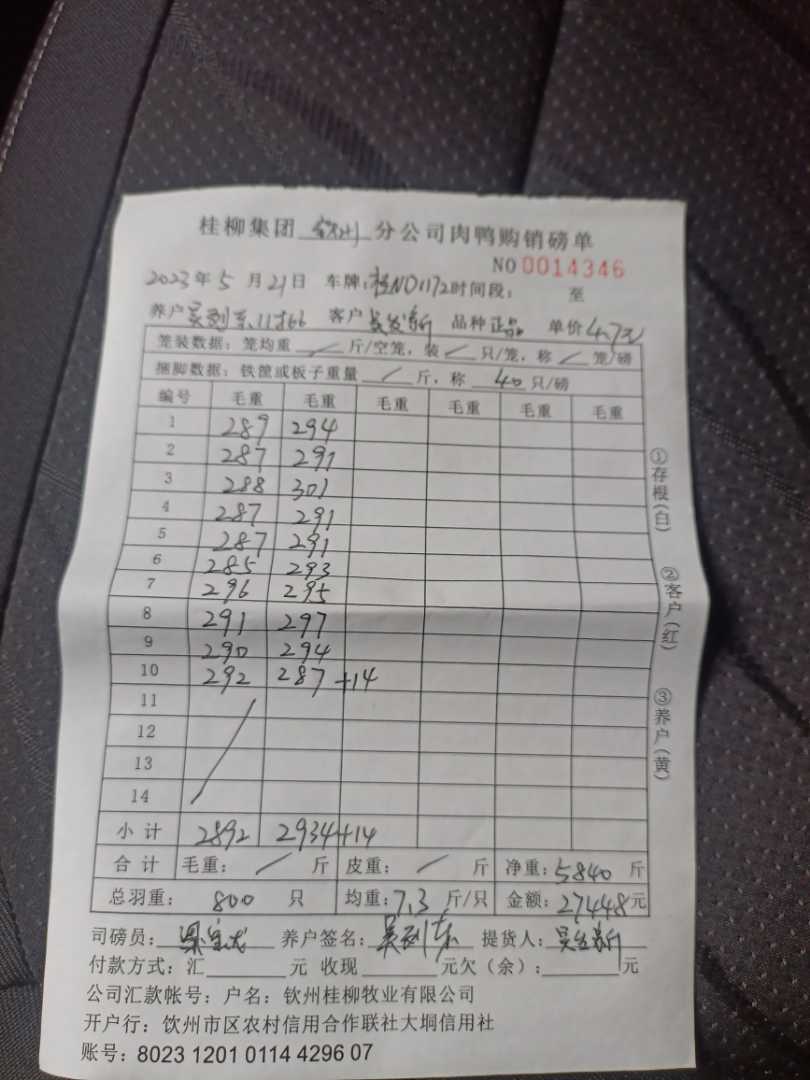 桂柳集团 钦州 分公司肉鸭购销磅单
NO 0014346
2023年5月21日 车牌:桂N01172 时间段: 至
养户 客户 品种 正品 单价 4.7元
笼装数据: 笼均重 / 斤/空笼, 装 / 只/笼, 称 / 笼/磅
捆脚数据: 铁筐或板子重量 / 斤, 称 40 只/磅
编号 毛重 毛重 毛重 毛重 毛重 毛重
1 289 294
2 287 291
3 288 301
4 287 291
5 287 291
6 285 293
7 296 295
8 291 297
9 290 294
10 292 287 +14
11
12
13
14
小计 2892 2934+14
合计 毛重: / 斤 皮重: / 斤 净重: 5840 斤
总羽重: 800 只 均重: 7.3 斤/只 金额: 27448元
司磅员: 养户签名: 提货人:
付款方式: 汇 元 收现 元欠(余): 元
公司汇款帐号: 户名: 钦州桂柳牧业有限公司
开户行: 钦州市区农村信用合作联社大垌信用社
账号: 8023 1201 0114 4296 07
①存根(白)
②客户(红)
③养户(黄)